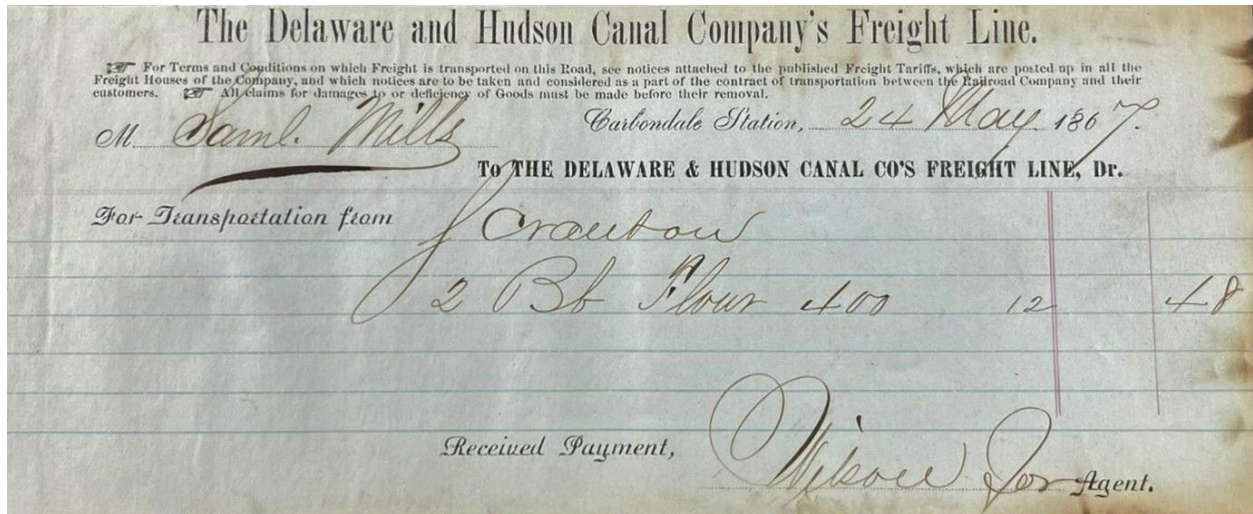 The Delaware and Hudson Canal Company's Freight Line.
☞ For Terms and Conditions on which Freight is transported on this Road, see notices attached to the published Freight Tariffs, which are posted up in all the
Freight Houses of the Company, and which notices are to be taken and considered as a part of the contract of transportation between the Railroad Company and their
customers. ☞ All claims for damages to or deficiency of Goods must be made before their removal.
M Saml. Mills Carbondale Station, 24 May 1867.
To THE DELAWARE & HUDSON CANAL CO'S FREIGHT LINE, Dr.
For Transportation from Scranton
2 Bb Flour 400 12 48
Received Payment, Wilson Jor Agent.